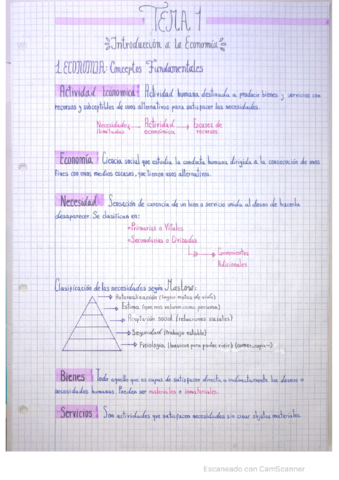 TEMA 1
Introducción a la Economía
1. ECONOMÍA: Conceptos Fundamentales
Actividad Económica: Actividad humana destinada a producir bienes y servicios con
recursos y susceptibles de usos alternativos para satisfacer las necesidades.
Necesidades Actividad Escasez de
ilimitadas económica recursos
Economía: Ciencia social que estudia la conducta humana dirigida a la consecución de unos
fines con unos medios escasos, que tienen usos alternativos.
Necesidad: Sensación de carencia de un bien o servicio unida al deseo de hacerla
desaparecer. Se clasifican en:
Primarias o Vitales
Secundarias o Civilizadas
Adicionales
Clasificación de las necesidades según Maslow:
Autorrealización (lograr metas de vida)
Estima (que nos valoren como persona)
Aceptación social (relaciones sociales)
Seguridad (trabajo estable)
Fisiología (básicas para poder vivir)
Bienes: Todo aquello que es capaz de satisfacer directa o indirectamente los deseos o
necesidades humanas. Pueden ser materiales o inmateriales.
Servicios: Son actividades que satisfacen necesidades sin crear objetos materiales.
Escaneado con CamScanner